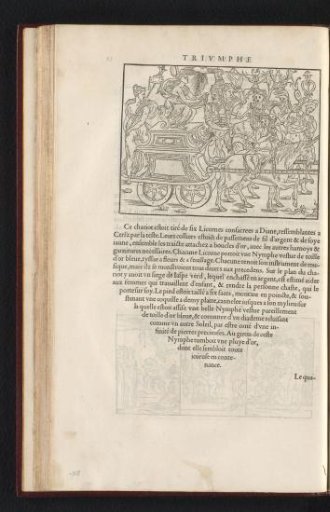 TRIVMPHE
Ce chariot estoit tiré de six Licornes consacrees a Diane, ressemblantes a
Cerfz par la teste. Leurs colliers estoiẽt de passemens de fil d'argent & de soye
iaune, ensemble les traictz attachez a boucles d'or, auec les autres harnoys &
garnitures necessaires. Chacune Licorne portoit vne Nymphe vestue de toille
d'or bleue, tyssue a fleurs & a fueillage. Chacune tenoit son instrument de mu-
sique,
Sur le plan du cha-
riot y auoit vn siege de Iaspe verd, lequel enchassé en argent, est estimé aider
aux femmes qui trauaillent d'enfant, & rendre la personne chaste, qui le
porte sur soy. Le pied estoit taillé a six faces, montant en poincte, & sou-
stenant vne coquille a demy platte,
a laquelle estoit assise vne belle Nymphe vestue pareillement
de toille d'or bleue, & couronnee d'vn diademe reluisant
comme vn autre Soleil, par estre orné d'vne in-
finité de pierres precieuses. Au giron de ceste
Nymphe tomboit vne pluye d'or,
dont elle sembloit toute
ioieuse en conte-
nance.
Le qua-